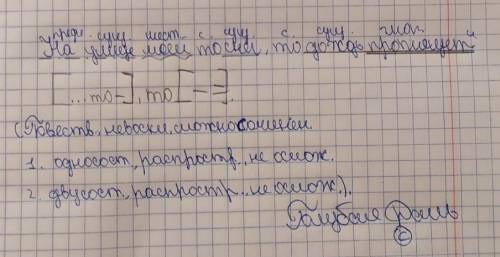 предл. сущ. мест. с. сущ. с. сущ. глаг.
"На улице моей то снег, то дождь пролетает"
[...то –], то [– =].
(Повеств., невоскл., сложносочинен.
1. односост., распростр., не ослож.
2. двусост., распростр., не ослож.).
Голубая Даль
©